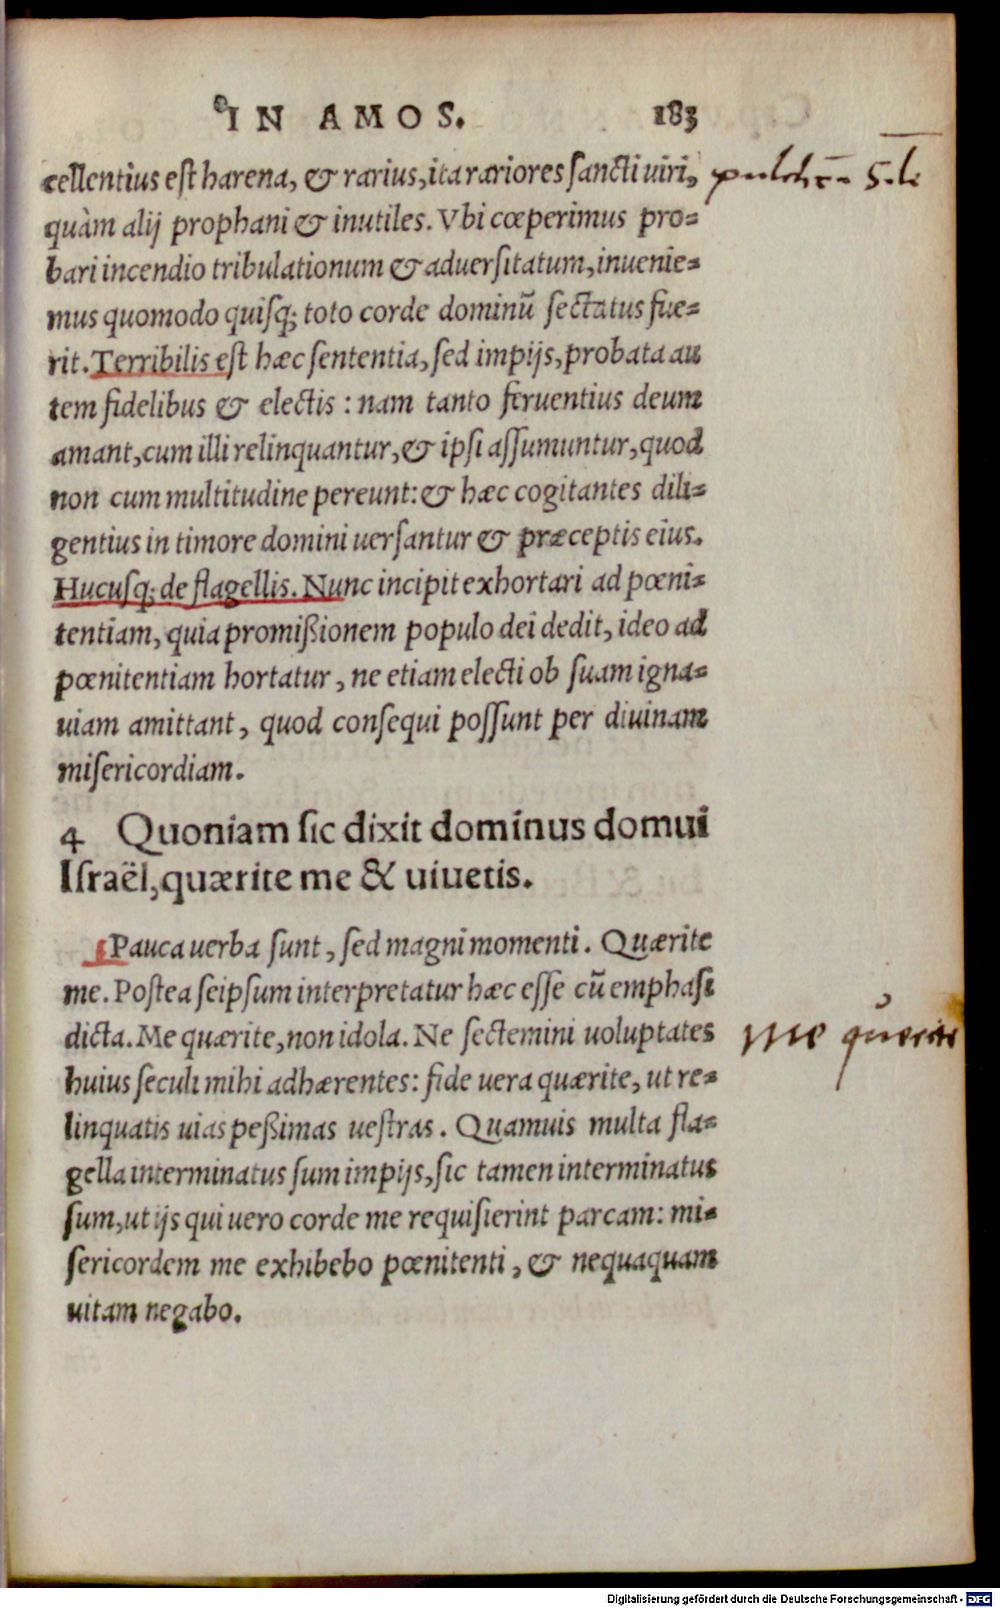 IN AMOS. 183
cellentius est harena, & rarius, ita rariores sancti uiri,
quàm alij prophani & inutiles. Vbi cœperimus pro=
bari incendio tribulationum & aduersitatum, inuenie=
mus quomodo quisq; toto corde dominũ sectatus fue=
rit. Terribilis est hæc sententia, sed impijs, probata au
tem fidelibus & electis : nam tanto feruentius deum
amant, cum illi relinquantur, & ipsi assumuntur, quod
non cum multitudine pereunt: & hæc cogitantes dili=
gentius in timore domini uersantur & præceptis eius.
Hucusq; de flagellis. Nunc incipit exhortari ad pœni=
tentiam, quia promißionem populo dei dedit, ideo ad
pœnitentiam hortatur, ne etiam electi ob suam igna=
uiam amittant, quod consequi possunt per diuinam
misericordiam.
4 Quoniam sic dixit dominus domui
Israël, quærite me & uiuetis.
Pauca uerba sunt, sed magni momenti. Quærite
me. Postea seipsum interpretatur hæc esse cũ emphasi
dicta. Me quærite, non idola. Ne sectemini uoluptates
me querite
huius seculi mihi adhærentes: fide uera quærite, ut re=
linquatis uias peßimas uestras. Quamuis multa fla=
gella interminatus sum impijs, sic tamen interminatus
sum, ut ijs qui uero corde me requisierint parcam: mi=
sericordem me exhibebo pœnitenti, & nequaquam
uitam negabo.
Digitalisierung gefördert durch die Deutsche Forschungsgemeinschaft - DFG